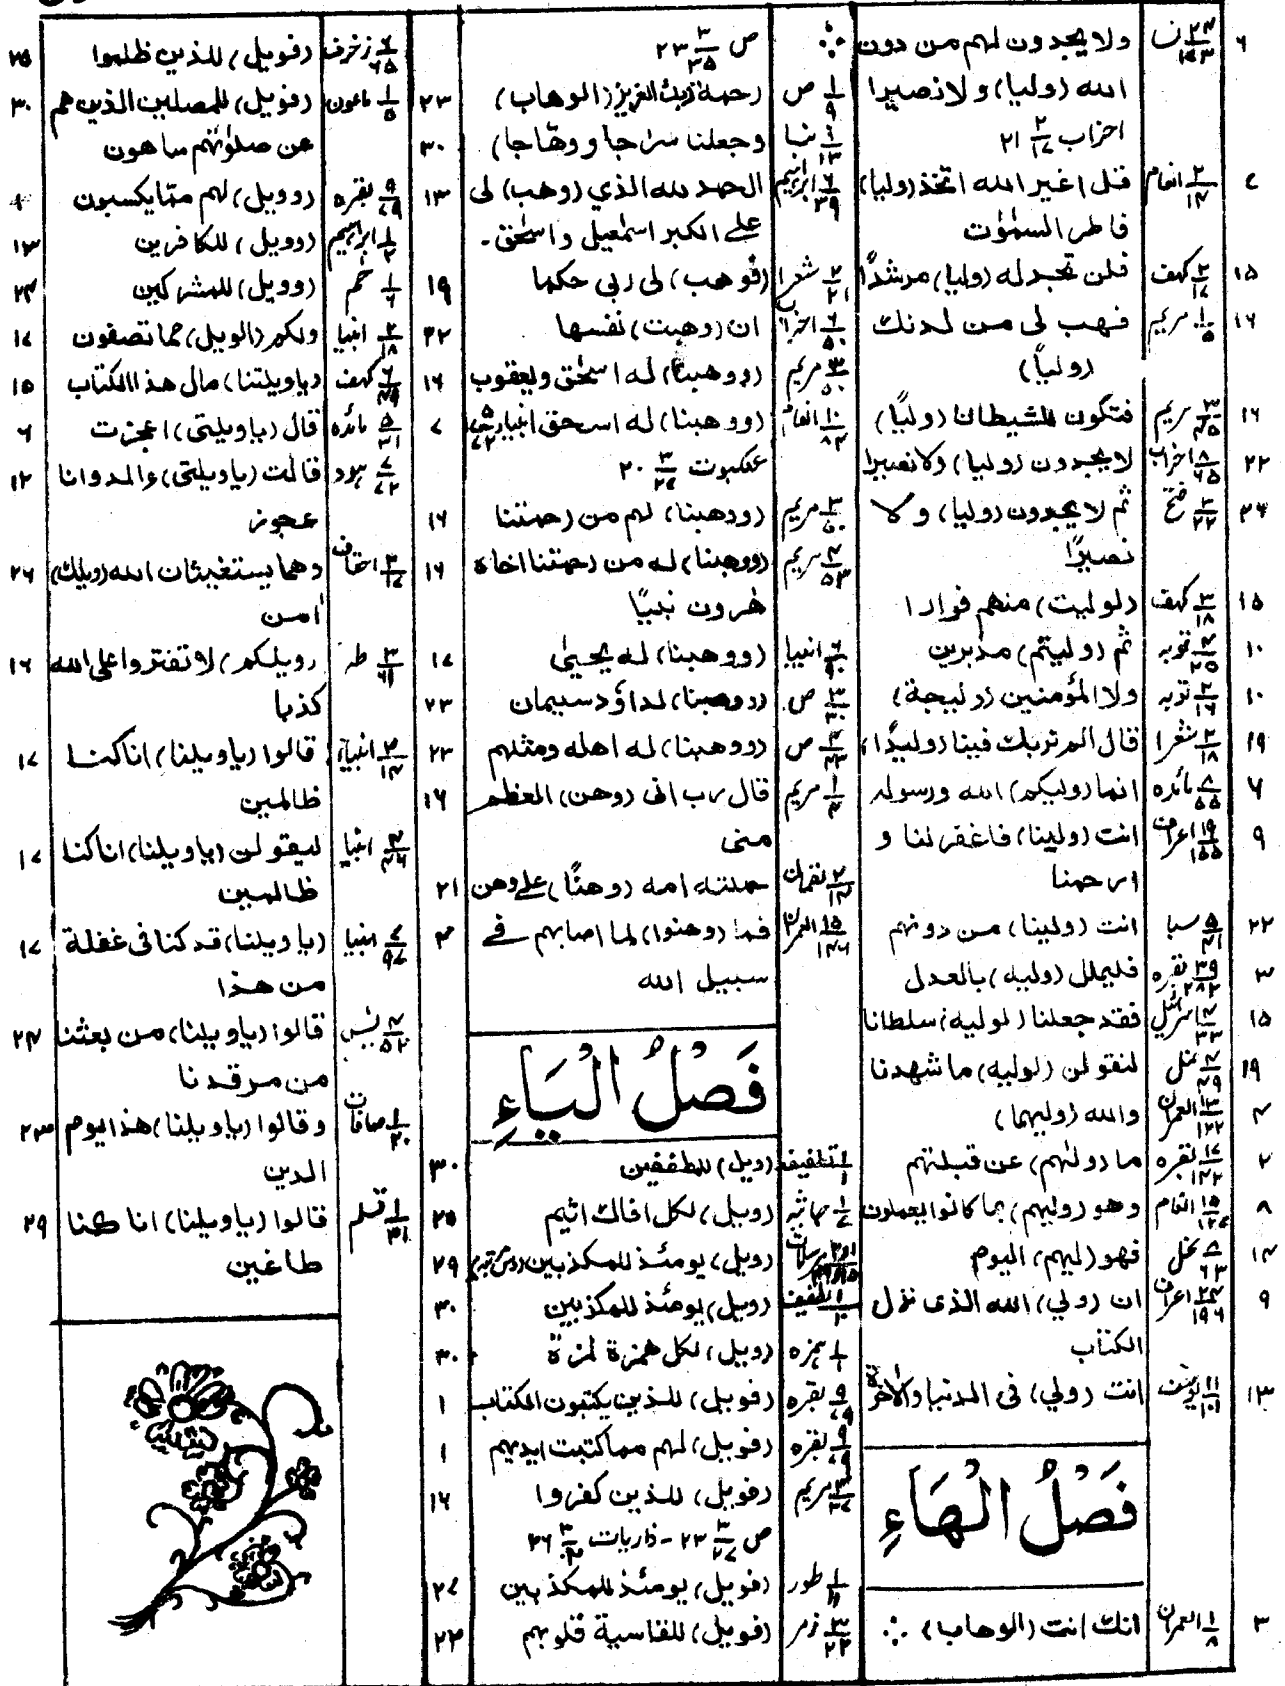 ٦ نسا ولا يجدون لهم من دون
الله (وليا) ولا نصيرا
احزاب ٢/١٧ ٢١
٧ ٢/١٤ انعام قل اغير الله اتخذ (وليا)
فاطر السمٰوٰت
١٥ ٢/١٧ كهف فلن تجد له (وليا) مرشدًا
١٦ ١/٥ مريم فهب لى من لدنك
(وليًا)
١٦ ٣/٤٥ مريم فتكون للشيطان (وليًا)
٢٢ ٨/٦٥ احزاب لا يجدون (وليا) ولا نصيرا
٢٦ ٣/٢٢ فتح ثم لا يجدون (وليا) ولا
نصيرًا
١٥ ٣/١٨ كهف (لوليت) منهم فرارا
١٠ ٤/٢٥ توبه ثم (وليتم) مدبرين
١٠ ٢/١٦ توبه ولا المؤمنين (وليجة)
١٩ ٢/١٨ شعرا قال الم نربك فينا (وليدًا)
٧ ٨/٥٥ مائده انما (وليكم) الله ورسوله
٩ ١٩/١٥٥ اعراف انت (ولينا) فاغفر لنا و
ارحمنا
٢٢ ٥/٤١ سبا انت (ولينا) من دونهم
٣ ٣٩/٢٨٢ بقره فليملل (وليه) بالعدل
١٥ ٤/٣٣ اسرائيل فقد جعلنا (لوليه) سلطانا
١٩ ٤/٤٩ نمل لنقولن (لوليه) ما شهدنا
٤ ١٣/١٢٢ العمران والله (وليهما)
٢ ١٧/١٤٢ بقره ما (ولٰهم) عن قبلتهم
٨ ١٥/١٢٧ انعام وهو (وليهم) بما كانوا يعملون
١٤ ٨/٦٣ نحل فهو (ليهم) اليوم
٩ ٢٤/١٩٦ اعراف ان (ولي) الله الذى نزل
الكتاب
١٣ ١١/١٠١ يوسف انت (ولي) فى الدنيا والاخرة
فَصْلُ الْهَاءِ
٣ ١/٨ العمران انك انت (الوهاب) ∴
∴ ص ٣/٣٥ ٢٣
٢٣ ١/٩ ص رحمة ربك العزيز (الوهاب)
٣٠ ١/١٣ نبا وجعلنا سراجا (وهّاجا)
١٣ ٦/٣٩ ابراهيم الحمد لله الذي (وهب) لى
على الكبر اسمٰعيل واسحٰق۔
١٩ ٢/٢١ شعرا (فوهب) لى ربى حكما
٢٢ ٦/٥٠ احزاب ان (وهبت) نفسها
١٦ ٣/٥٠ مريم (ووهبنا) له اسحٰق ويعقوب
٧ ١٠/٨٤ انعام (ووهبنا) له اسحق انبيا ٥/٧٢
عنكبوت ٣/٢٧ ٢٠
١٦ ٣/٥٠ مريم (ووهبنا) لهم من رحمتنا
١٦ ٤/٥٣ مريم (ووهبنا) له من رحمتنا اخاه
هٰرون نبيًا
١٧ ٦/٩٠ انبيا (ووهبنا) له يحيىٰ
٢٣ ٣/٣٠ ص (ووهبنا) لداؤد سليمان
٢٣ ٤/٤٣ ص (ووهبنا) له اهله ومثلهم
١٦ ١/٤ مريم قال رب انى (وهن) العظم
منى
٢١ ٢/١٤ لقمان حملته امه (وهنًا) على وهن
٤ ١٥/١٤٦ العمران فما (وهنوا) لما اصابهم فى
سبيل الله
فَصْلُ الْيَاءِ
٣٠ ١/١ تطفيف (ويل) للمطففين
٢٥ ١/٧ جاثيه (ويل) لكل افاك اثيم
٢٩ مرسلات (ويل) يومئذ للمكذبين
٣٠ ١/١٠ تطفيف (ويل) يومئذ للمكذبين
٣٠ ١/١ همزه (ويل) لكل همزة لمزة
١ ٩/٧٩ بقره (فويل) للذين يكتبون الكتاب
١ ٩/٧٩ بقره (فويل) لهم مما كتبت ايديهم
١٦ ٢/٣٧ مريم (فويل) للذين كفروا
ص ٣/٢٧ ٢٣ - ذاريات ٣/٦٠ ٢٦
٢٧ ١/١١ طور (فويل) يومئذ للمكذبين
٢٣ ٣/٢٢ زمر (فويل) للقاسية قلوبهم
٢٥ ٦/٦٥ زخرف (فويل) للذين ظلموا
٣٠ ١/٥ ماعون (فويل) للمصلين الذين هم
عن صلوٰتهم ساهون
١ ٩/٧٩ بقره (وويل) لهم مما يكسبون
١٣ ١/٢ ابراهيم (وويل) للكافرين
٢٤ ١/٦ حٰم (وويل) للمشركين
١٧ ٢/١٨ انبيا ولكم (الويل) مما تصفون
١٥ ٦/٤٩ كهف (ياويلتنا) مال هذا الكتاب
٦ ٥/٣١ مائده قال (ياويلتى) اعجزت
١٢ ٧/٧٢ هود قالت (ياويلتى) ءالد وانا
عجوز
٢٦ ٢/١٧ احقاف وهما يستغيثان الله (ويلك)
اٰمن
١٦ ٣/٦١ طه (ويلكم) لا تفتروا على الله
كذبا
١٧ ٢/١٤ انبياء قالوا (ياويلنا) انا كنا
ظالمين
١٧ ٤/٤٦ انبيا ليقولن (ياويلنا) انا كنا
ظالمين
١٧ ٧/٩٧ انبيا (ياويلنا) قد كنا فى غفلة
من هذا
٢٣ ٤/٥٢ يٰس قالوا (ياويلنا) من بعثنا
من مرقدنا
٢٣ ١/٢٠ صافات وقالوا (ياويلنا) هذا يوم
الدين
٢٩ ١/٣١ قلم قالوا (ياويلنا) انا كنا
طاغين